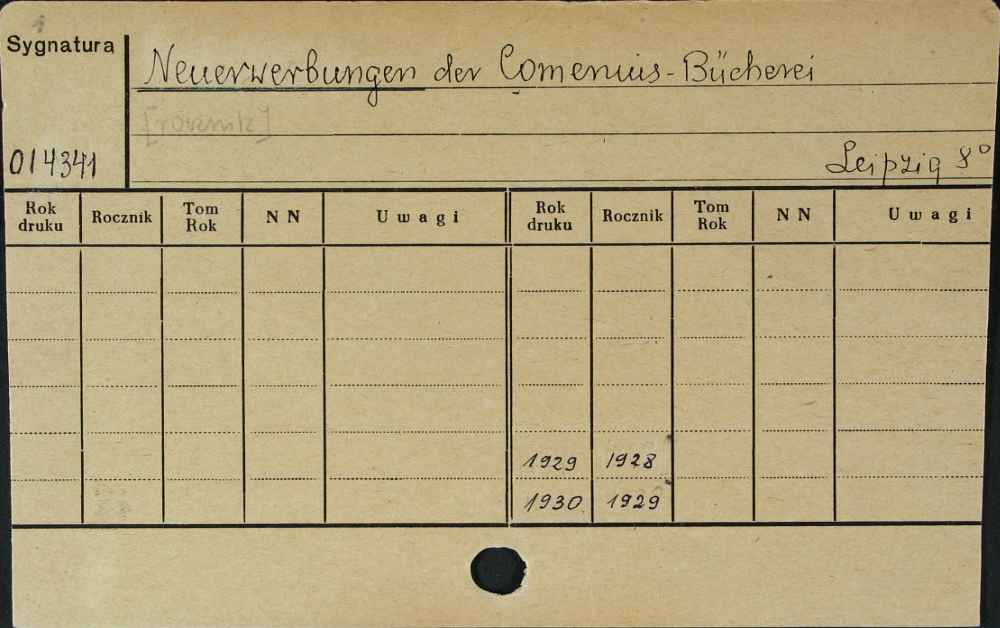 1
Sygnatura
Neuerwerbungen der Comenius-Bücherei
[rocznik]
014341
Leipzig 8°
Rok druku Rocznik Tom Rok N N Uwagi Rok druku Rocznik Tom Rok N N Uwagi
1929 1928
1930 1929